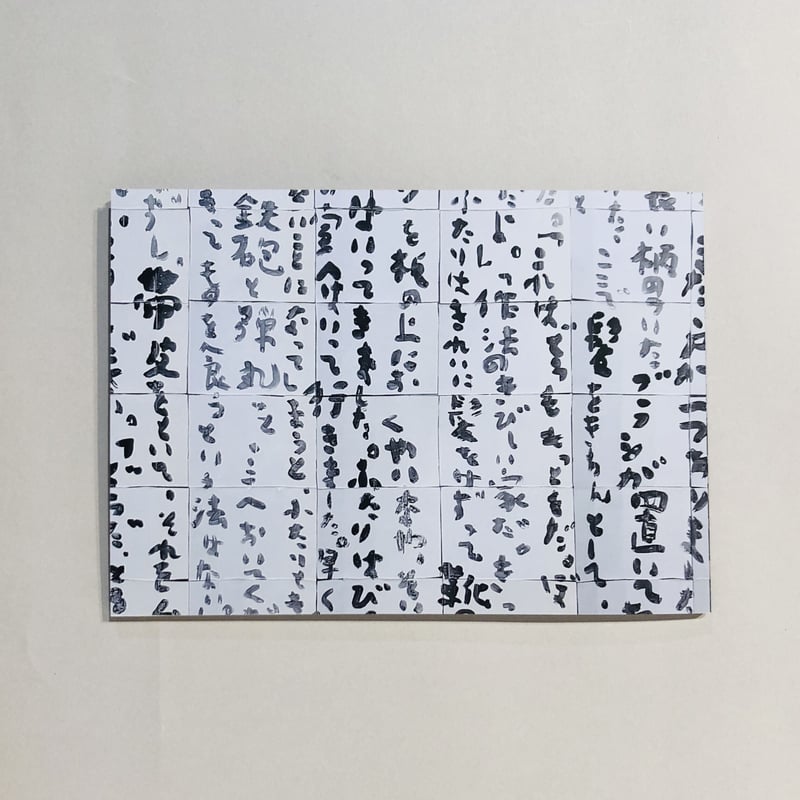 い柄のついたブラシが置いて
ここで髪をきちんとして、
「これはどうももっともだ。ぼ
だよ。」「作法のきびしい家だ。きっ
ふたりはきれいに髪をけずって靴
を板の上におくやいなや、
はいってきました。ふたりはび
の室へはいって行きました。早く
ないことになってしまうと、ふたりとも
鉄砲と弾丸をここへおいてくだ
ってものを食うという法はない
ずし、帯皮をといて、それを